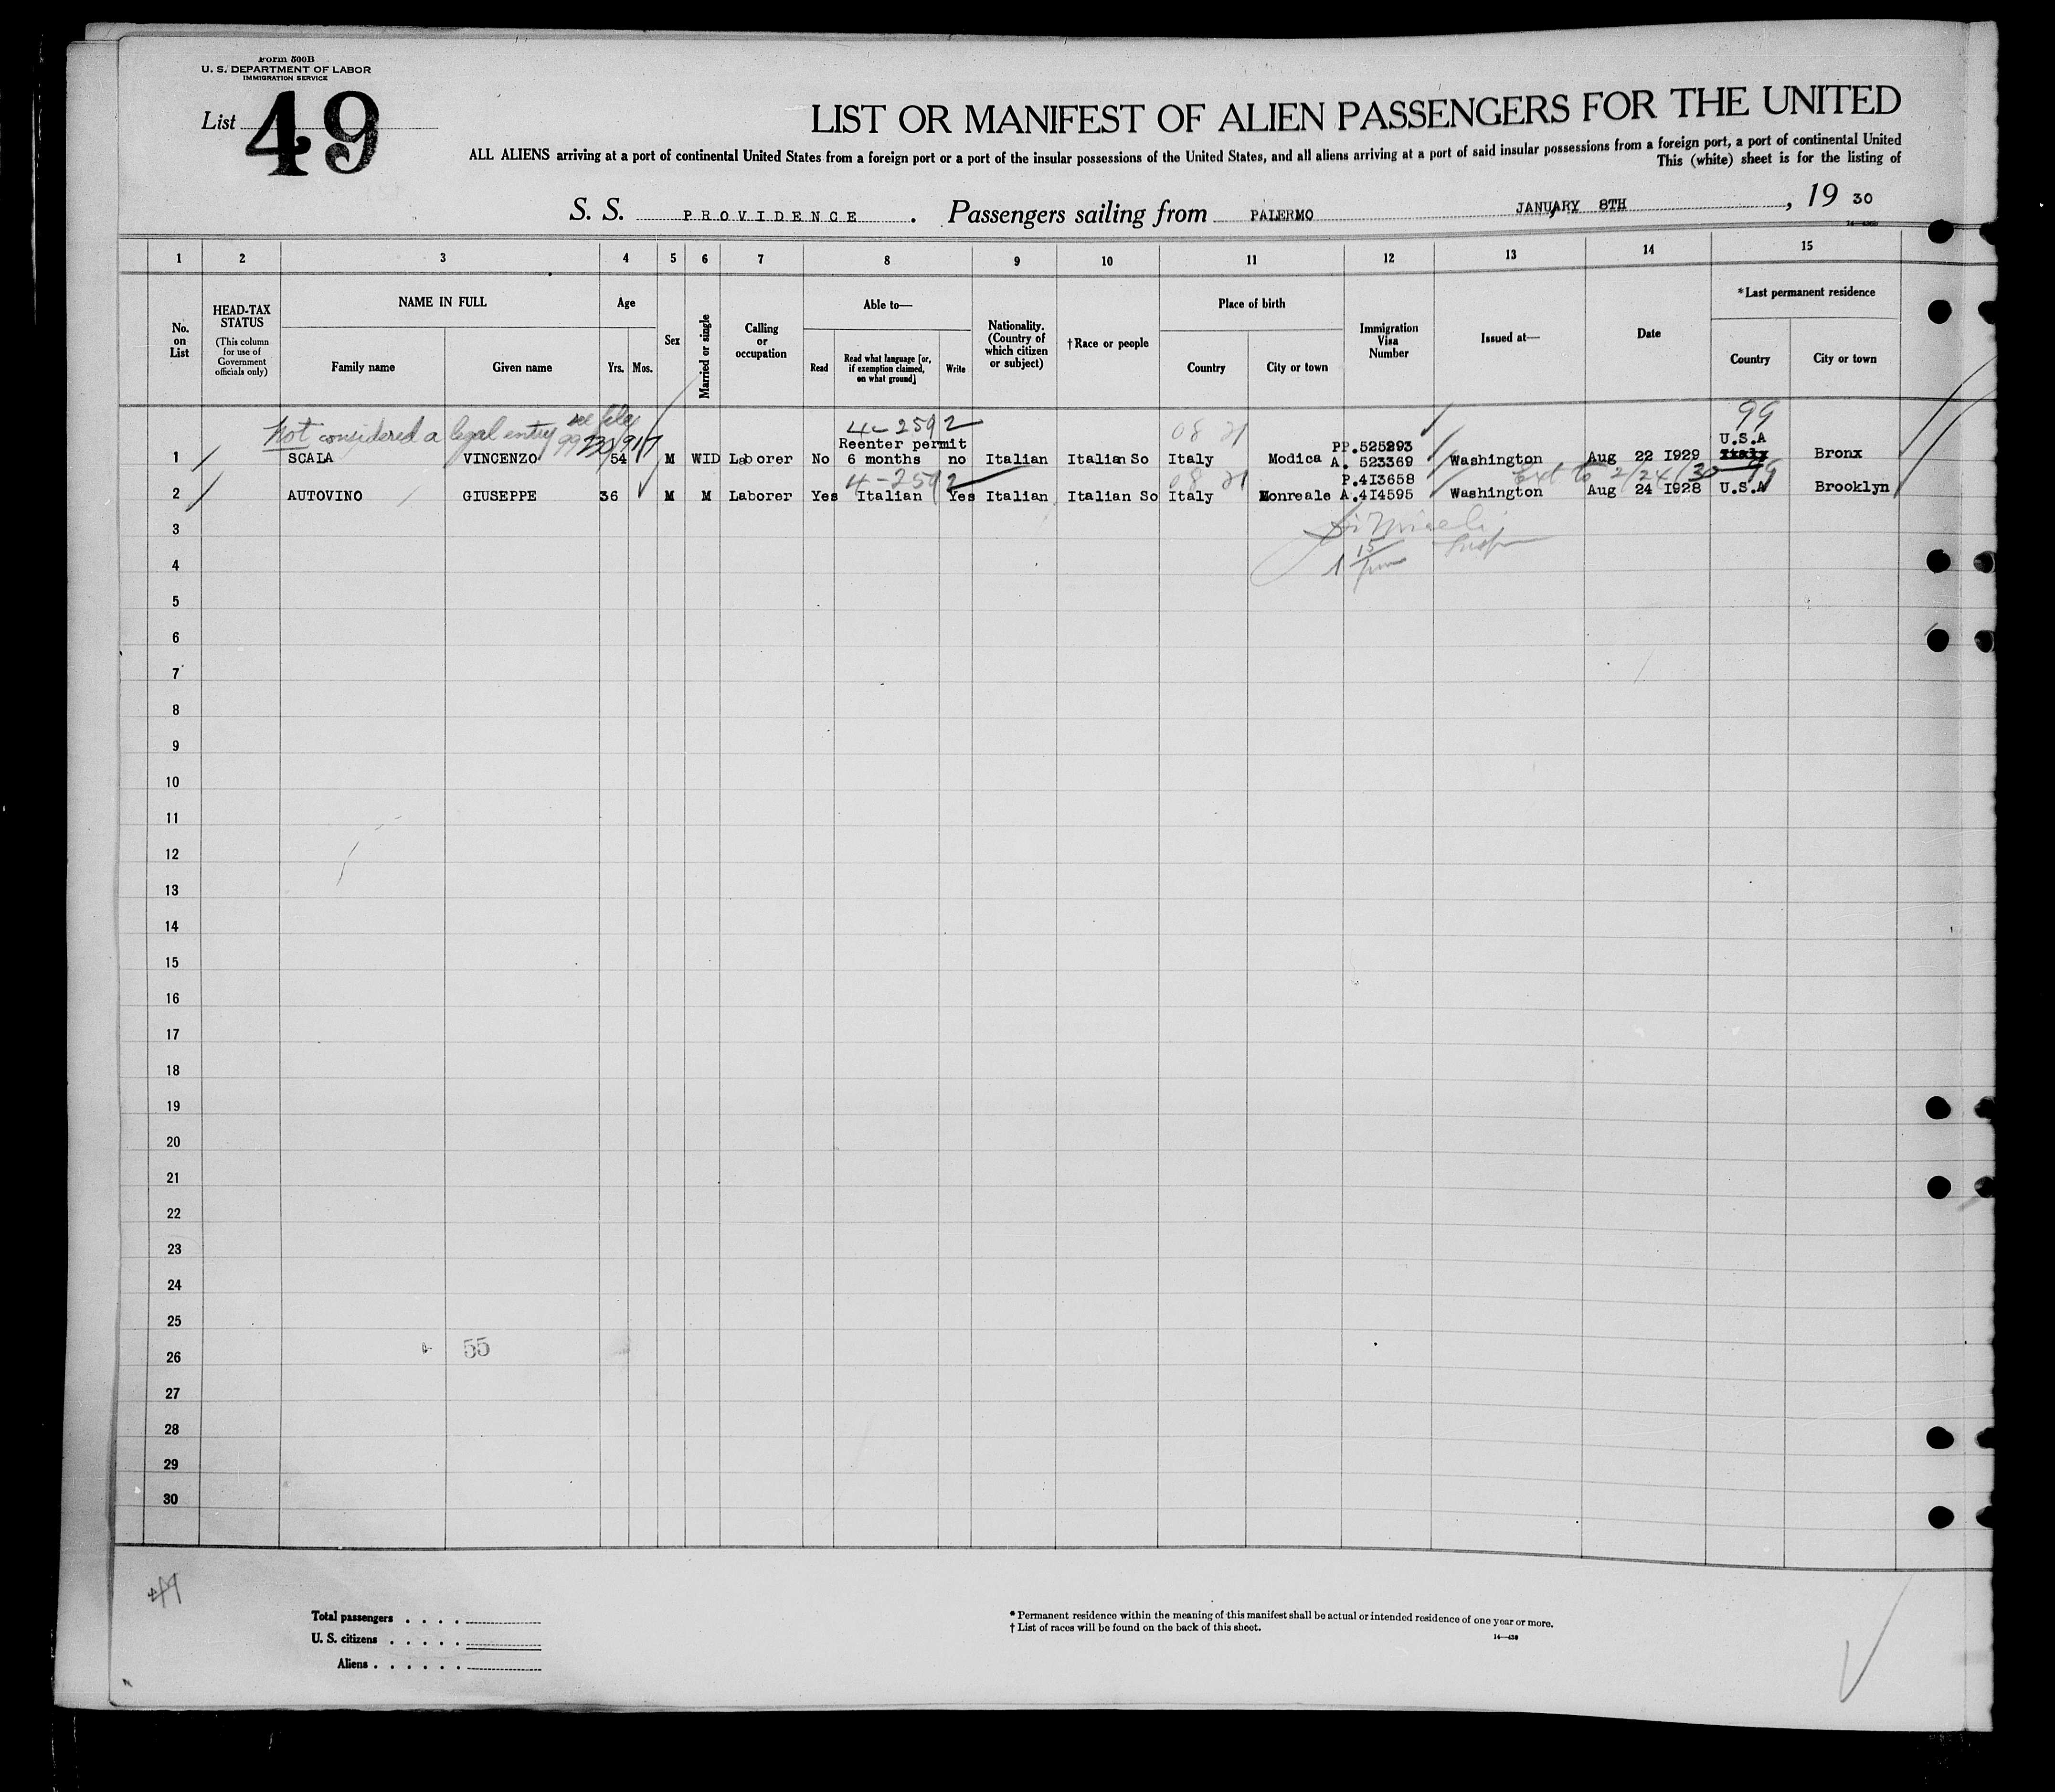 Form 500B
U. S. DEPARTMENT OF LABOR
IMMIGRATION SERVICE
List 49
LIST OR MANIFEST OF ALIEN PASSENGERS FOR THE UNITED
ALL ALIENS arriving at a port of continental United States from a foreign port or a port of the insular possessions of the United States, and all aliens arriving at a port of said insular possessions from a foreign port, a port of continental United
This (white) sheet is for the listing of
S. S. PROVIDENCE . Passengers sailing from PALERMO JANUARY 8TH , 19 30
1 2 3 4 5 6 7 8 9 10 11 12 13 14 15
No. on List
HEAD-TAX STATUS
(This column for use of Government officials only)
NAME IN FULL
Family name Given name
Age
Yrs. Mos.
Sex
Married or single
Calling or occupation
Able to—
Read
Read what language [or, if exemption claimed, on what ground]
Write
Nationality. (Country of which citizen or subject)
†Race or people
Place of birth
Country City or town
Immigration Visa Number
Issued at—
Date
*Last permanent residence
Country City or town
Not considered a legal entry see file
4-2592
99
Reenter permit
PP.525293
U.S.A
1 SCALA VINCENZO 54 M WID Laborer No 6 months no Italian Italian So Italy Modica A. 523369 Washington Aug 22 1929 Italy Bronx
4-2592
Ext to 2/24/30
99
P.413658
2 AUTOVINO GIUSEPPE 36 M M Laborer Yes Italian Yes Italian Italian So Italy Monreale A.414595 Washington Aug 24 1928 U.S.A Brooklyn
3
4
5
6
7
8
9
10
11
12
13
14
15
16
17
18
19
20
21
22
23
24
25
26 55
27
28
29
30
Total passengers . . . .
U. S. citizens . . . . .
Aliens . . . . . .
* Permanent residence within the meaning of this manifest shall be actual or intended residence of one year or more.
† List of races will be found on the back of this sheet.